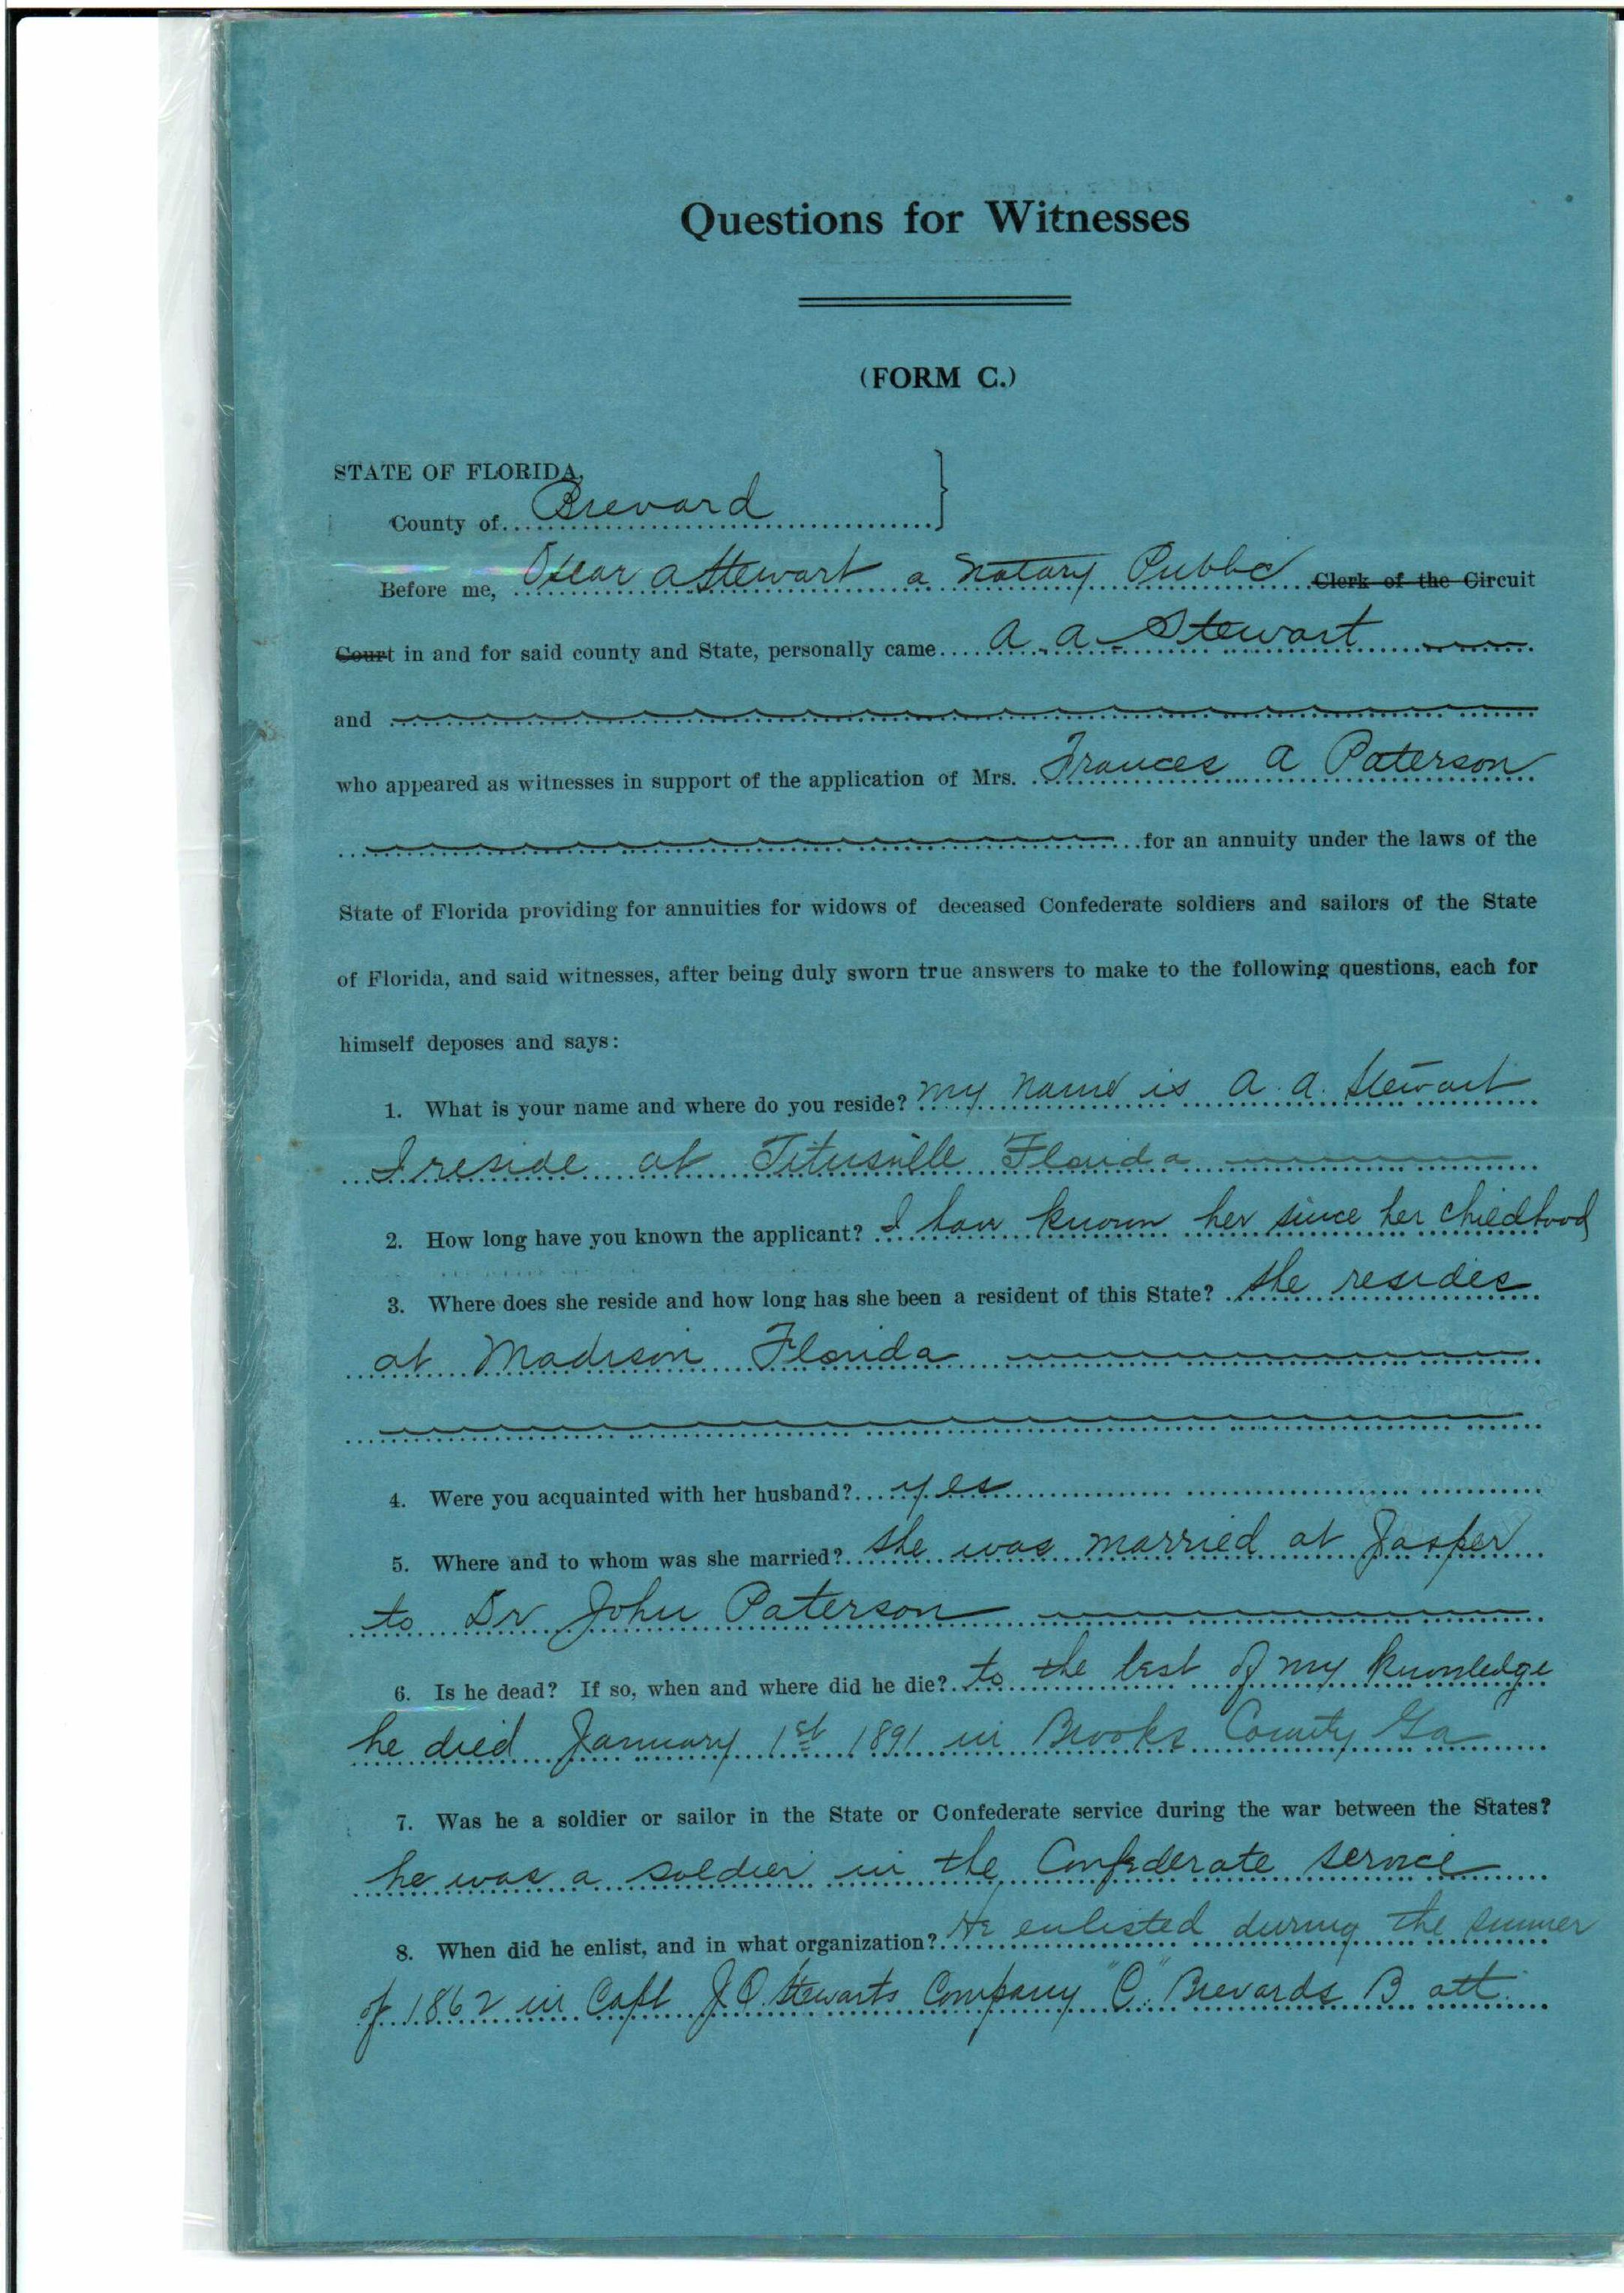 Questions for Witnesses
(FORM C.)
STATE OF FLORIDA,
County of Brevard
Before me, Oscar A Stewart a Notary Public Clerk of the Circuit
Court in and for said county and State, personally came A. A. Stewart
and
who appeared as witnesses in support of the application of Mrs. Frances A Paterson
for an annuity under the laws of the
State of Florida providing for annuities for widows of deceased Confederate soldiers and sailors of the State
of Florida, and said witnesses, after being duly sworn true answers to make to the following questions, each for
himself deposes and says:
1. What is your name and where do you reside? My name is A. A. Stewart
I reside at Titusville Florida
2. How long have you known the applicant? I have known her since her childhood
3. Where does she reside and how long has she been a resident of this State? She resides
at Madison Florida
4. Were you acquainted with her husband? yes
5. Where and to whom was she married? She was married at Jasper
to Dr John Paterson
6. Is he dead? If so, when and where did he die? to the best of my knowledge
he died January 1st 1891 in Brooks County Ga
7. Was he a soldier or sailor in the State or Confederate service during the war between the States?
he was a soldier in the Confederate service
8. When did he enlist, and in what organization? He enlisted during the summer
of 1862 in Capt J. O. Stewarts Company "C" Brevards Batt.